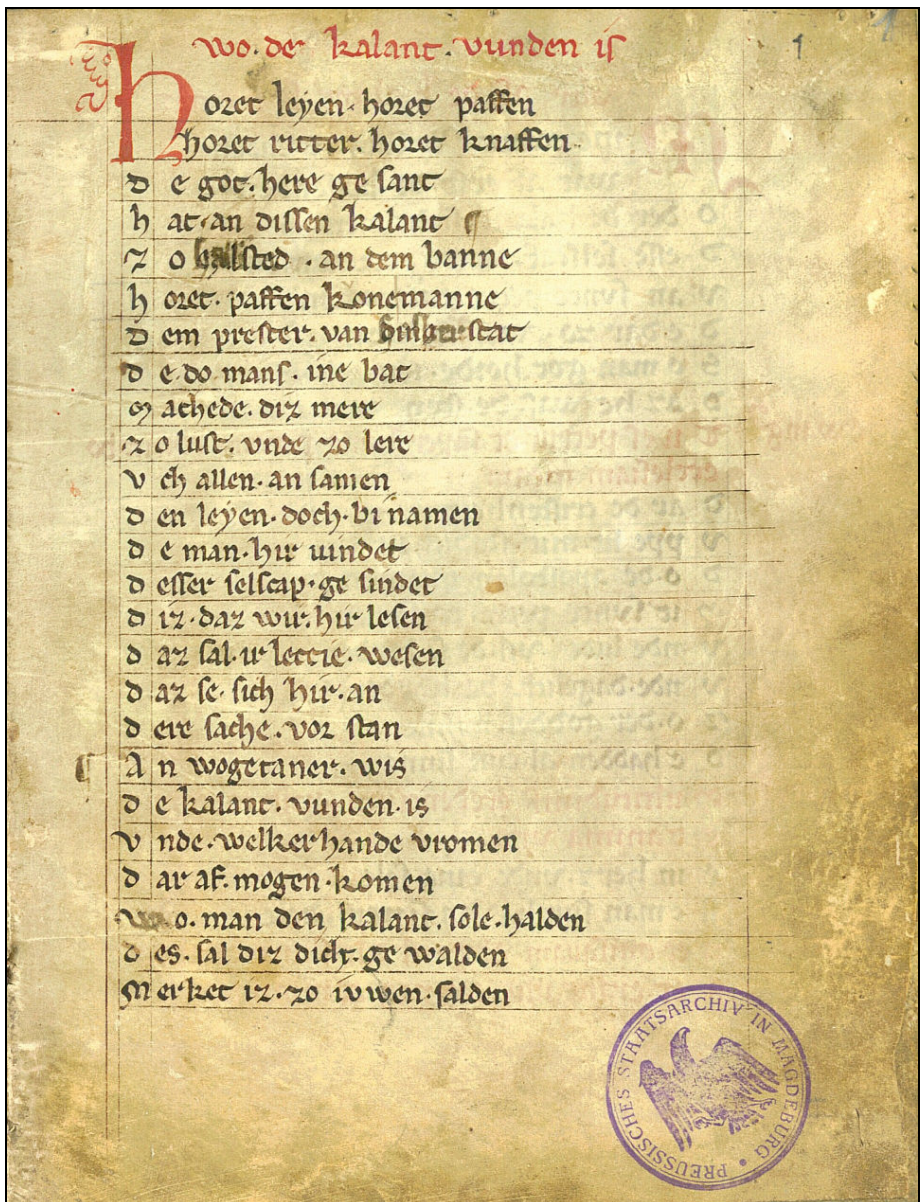 wo. de kalant. vunden iſ
1
horet leyen. horet paffen
horet ritter. horet knaffen.
de got. here ge ſant
hat. an diſſen kalant
zo halſted. an dem banne
horet. paffen konemanne
dem preſter. van ſtat
de. do manſ. ine bat
Machede. diz mere
zo luſt. vnde zo lere
vch allen. an ſamen
den leyen. doch. bi namen
de man. hir uindet
deſſer ſelſcap. ge ſindet
diz. daz wir. hir leſen
daz ſal. ir leccie. weſen
daz ſe. ſich hir. an
dere ſache. vor ſtan
An wogetaner. wis
de kalant. vunden. is
vnde. welkerhande vromen
dar af. mogen. komen
wo. man den kalant. ſole. halden
des. ſal diz dicht. ge walden
Merket iz. zo ivwen. ſalden
PREUSSISCHES STAATSARCHIV IN MAGDEBURG